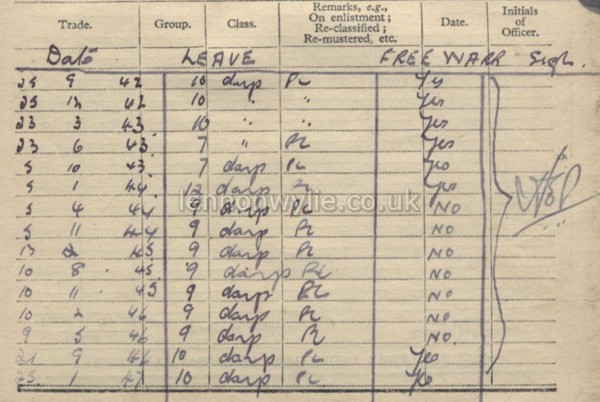 Trade. Group. Class. Remarks, e.g., On enlistment; Re-classified; Re-mustered, etc. Date. Initials of Officer.
Date LEAVE FREE WARR Sigh.
25 9 42 10 days PL Yes
25 12 42 10 " " Yes
23 3 43 10 " " Yes
23 6 43 7 " PL Yes
5 10 43 7 days PL Yes
5 1 44 12 days PL Yes
lennonwylie.co.uk
5 4 44 9 days PL NO
5 11 44 9 days PL NO
13 2 45 9 days PL NO
10 8 45 9 days PL NO
10 11 45 9 days PL NO
10 2 46 9 days PL NO
9 5 46 9 days PL NO
21 9 46 10 days PL Yes
25 1 47 10 days PL Yes